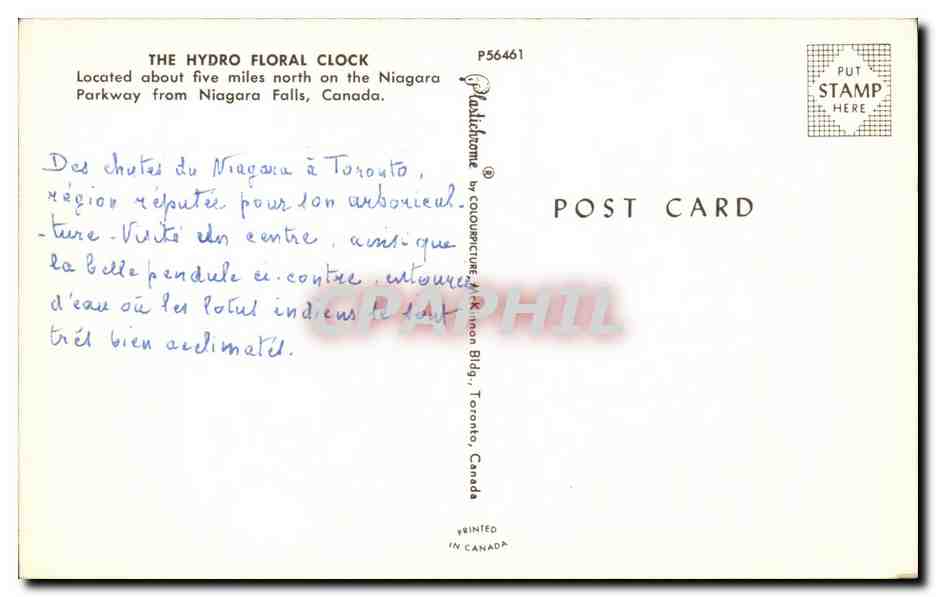 THE HYDRO FLORAL CLOCK
Located about five miles north on the Niagara
Parkway from Niagara Falls, Canada.
Des chutes du Niagara à Toronto,
région réputée pour son arboricul-
-ture - Visité un centre, ainsi que
la belle pendule ci-contre, entourée
d'eau où les lotus indiens se sont
très bien acclimatés.
P56461
Plastichrome ® by COLOURPICTURE, McKinnon Bldg., Toronto, Canada
PRINTED
IN CANADA
PUT
STAMP
HERE
POST CARD
CPAPHIL